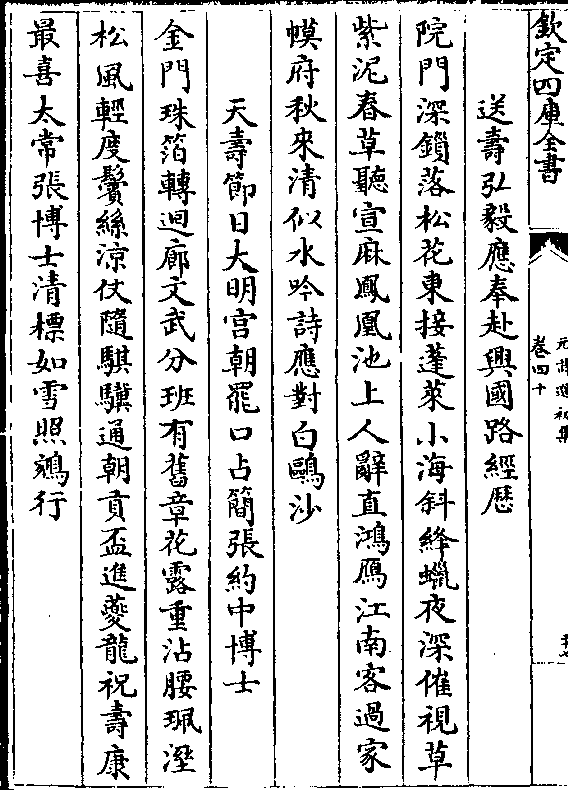 欽定四庫全書
卷四十
送壽弘毅應奉赴興國路經歷
院門深鎖落松花東接蓬萊小海斜絳蠟夜深催視草
紫泥春草聽宣麻鳳凰池上人辭直鴻鴈江南客過家
幙府秋來清似水吟詩應對白鷗沙
天壽節日大明宫朝罷口占簡張約中博士
金門珠箔轉迴廊文武分班有舊章花露重沾腰珮溼
松風輕度鬢絲涼仗隨騏驥通朝貢盃進夔龍祝壽康
最喜太常張博士清標如雪照鵷行